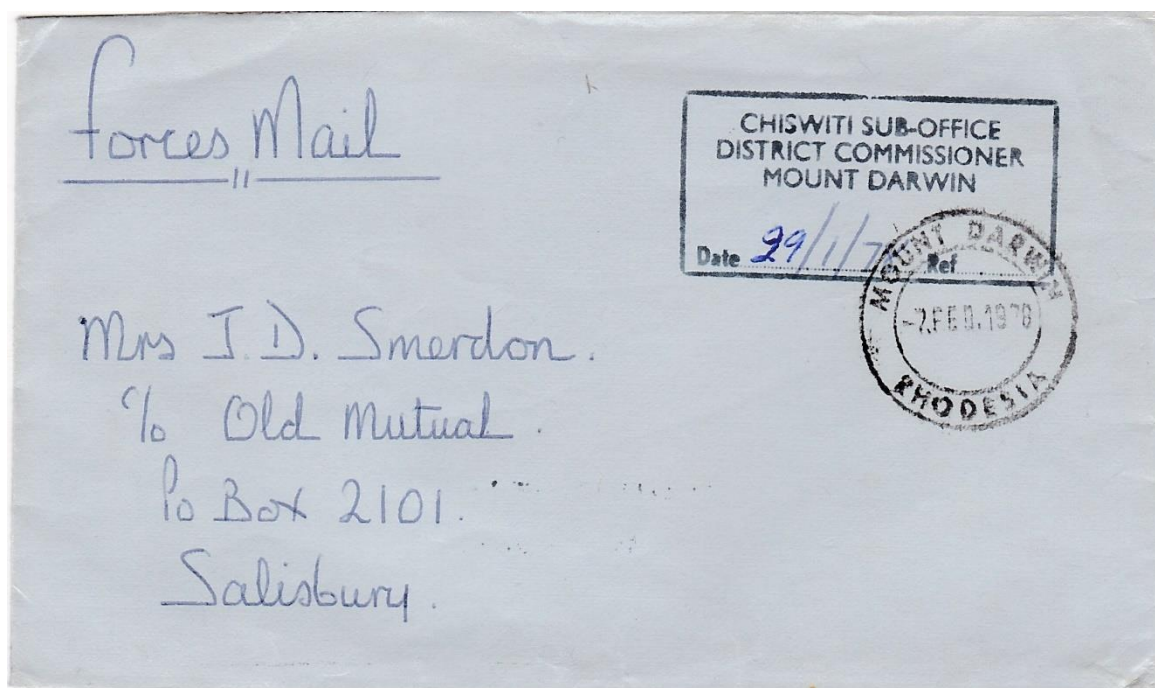 Forces Mail
CHISWITI SUB-OFFICE
DISTRICT COMMISSIONER
MOUNT DARWIN
Date 29/1/7 Ref
MOUNT DARWIN
-2.FEB.1978
RHODESIA
Mrs J. D. Smerdon.
c/o Old Mutual.
Po Box 2101.
Salisbury.